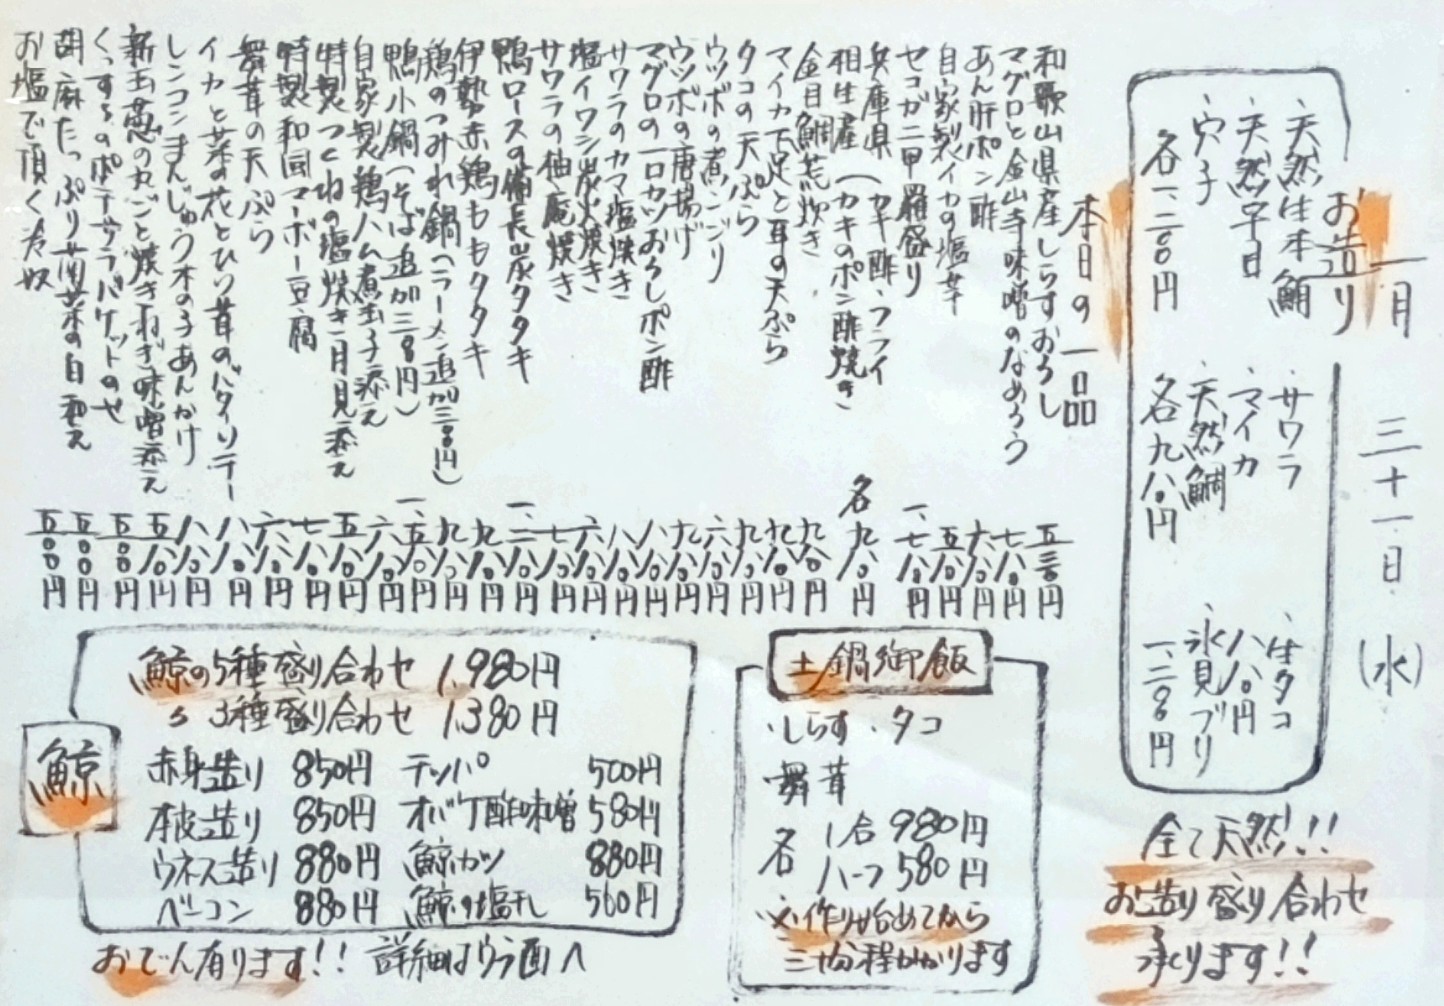 一月 三十一日 (水)
お造り
・天然生本鮪
・天然平目
・穴子
各一、二八〇円
・サワラ
・マイカ
・天然鯛
各九八〇円
・生タコ
八八〇円
・氷見ブリ
一、二八〇円
全て天然!!
お造り盛り合わせ
承ります!!
本日の一品
和歌山県産しらすおろし 五三〇円
マグロと金山寺味噌のなめろう 七八〇円
あん肝ポン酢 六八〇円
自家製イカの塩辛 五八〇円
セコガニ甲羅盛り 一、七八〇円
兵庫県 (カキ酢・フライ
相生産 (カキのポン酢焼き 各九八〇円
金目鯛荒炊き 九八〇円
マイカ下足と耳の天ぷら 九八〇円
タコの天ぷら 九八〇円
ウツボの煮コゴリ 六八〇円
ウツボの唐揚げ 九八〇円
マグロの一口カツおろしポン酢 八八〇円
サワラのカマ塩焼き 八八〇円
塩イワシ炭火焼き 六八〇円
サワラの柚庵焼き 七八〇円
鴨ロースの備長炭タタキ 一、二八〇円
伊勢赤鶏ももタタキ 九八〇円
鶏のつみれ鍋(ラーメン追加三〇〇円) 九八〇円
鴨小鍋(そば追加三〇〇円) 一、五八〇円
自家製鶏ハム煮玉子添え 六八〇円
特製つくねの塩焼き月見添え 五八〇円
特製和風マーボー豆腐 七八〇円
舞茸の天ぷら 六八〇円
イカと菜の花とひら茸のバタソテー 八八〇円
レンコンまんじゅう木の子あんかけ 八八〇円
新玉葱の丸ごと焼きねぎ味噌添え 五八〇円
くっするのポテサラバケットのせ 五〇〇円
胡麻たっぷり野菜の白和え 五〇〇円
お塩で頂く冷奴 五〇〇円
土鍋御飯
・しらす ・タコ
・舞茸
各 1合 980円
ハーフ 580円
※作り始めてから
三十分程かかります
鯨
鯨の5種盛り合わせ 1,980円
〃 3種盛り合わせ 1,380円
赤身造り 850円 テッパ 500円
本皮造り 850円 オバケ酢味噌 580円
ウネス造り 880円 鯨カツ 880円
ベーコン 880円 鯨の塩ユデ 500円
おでん有ります!! 詳細はウラ面へ